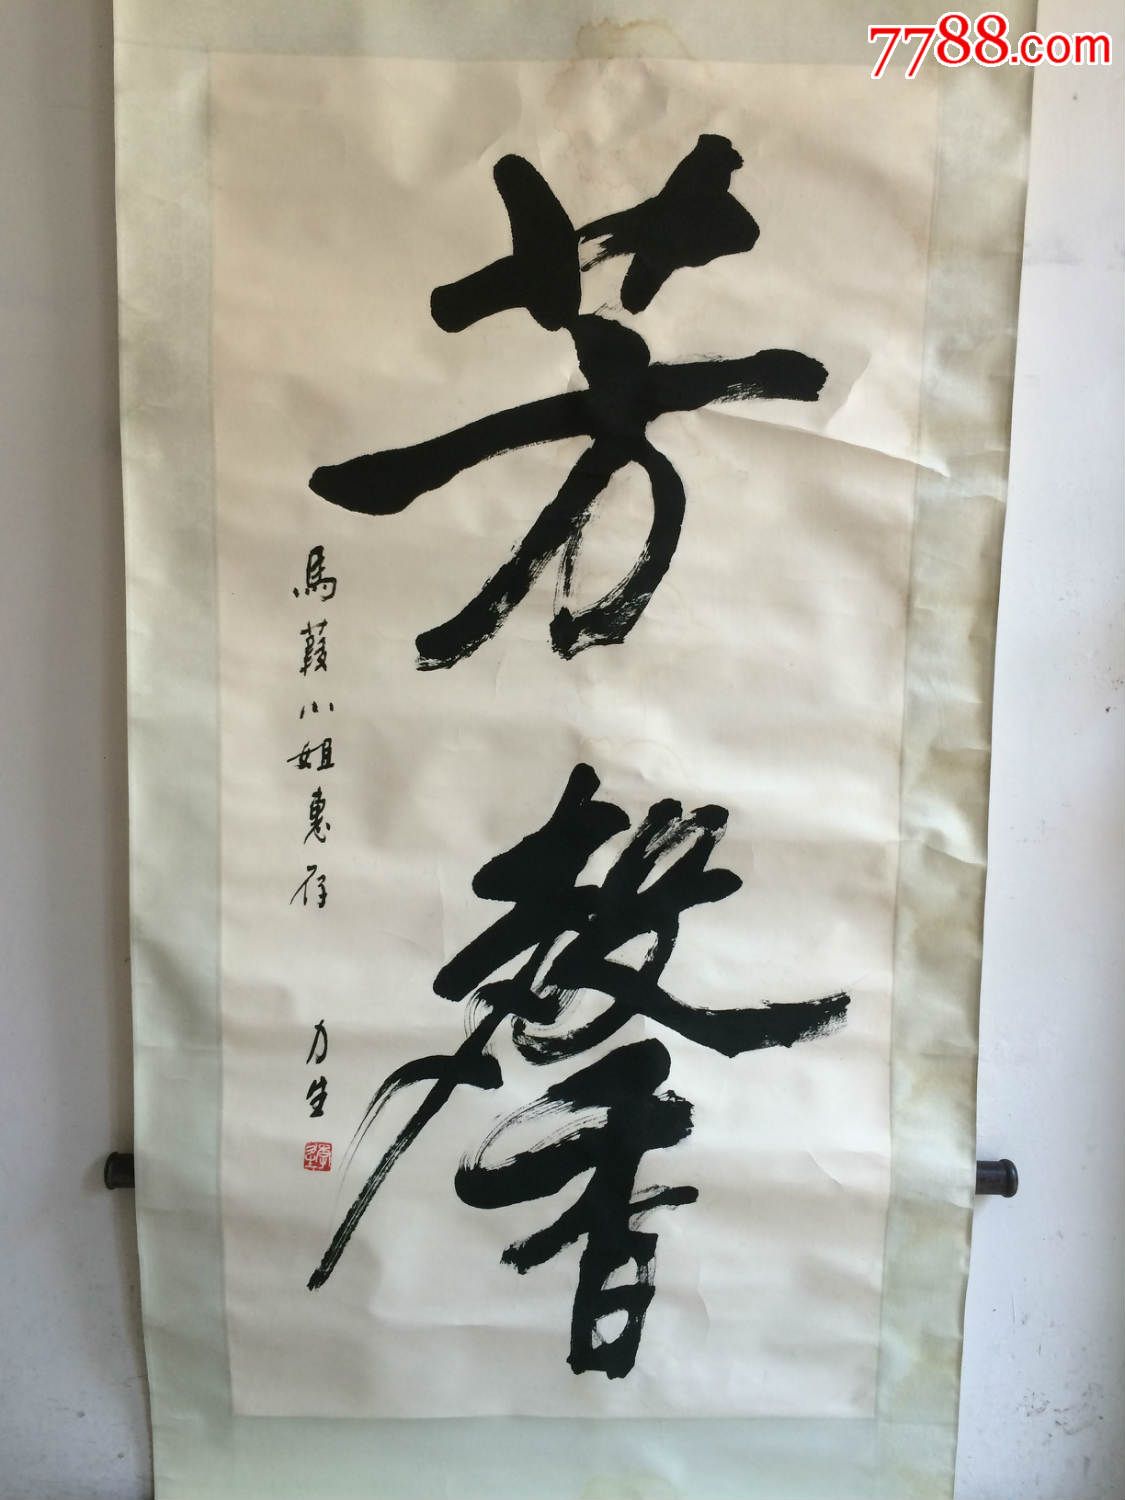 7788.com
芳馨
馬葭小姐惠存
力生